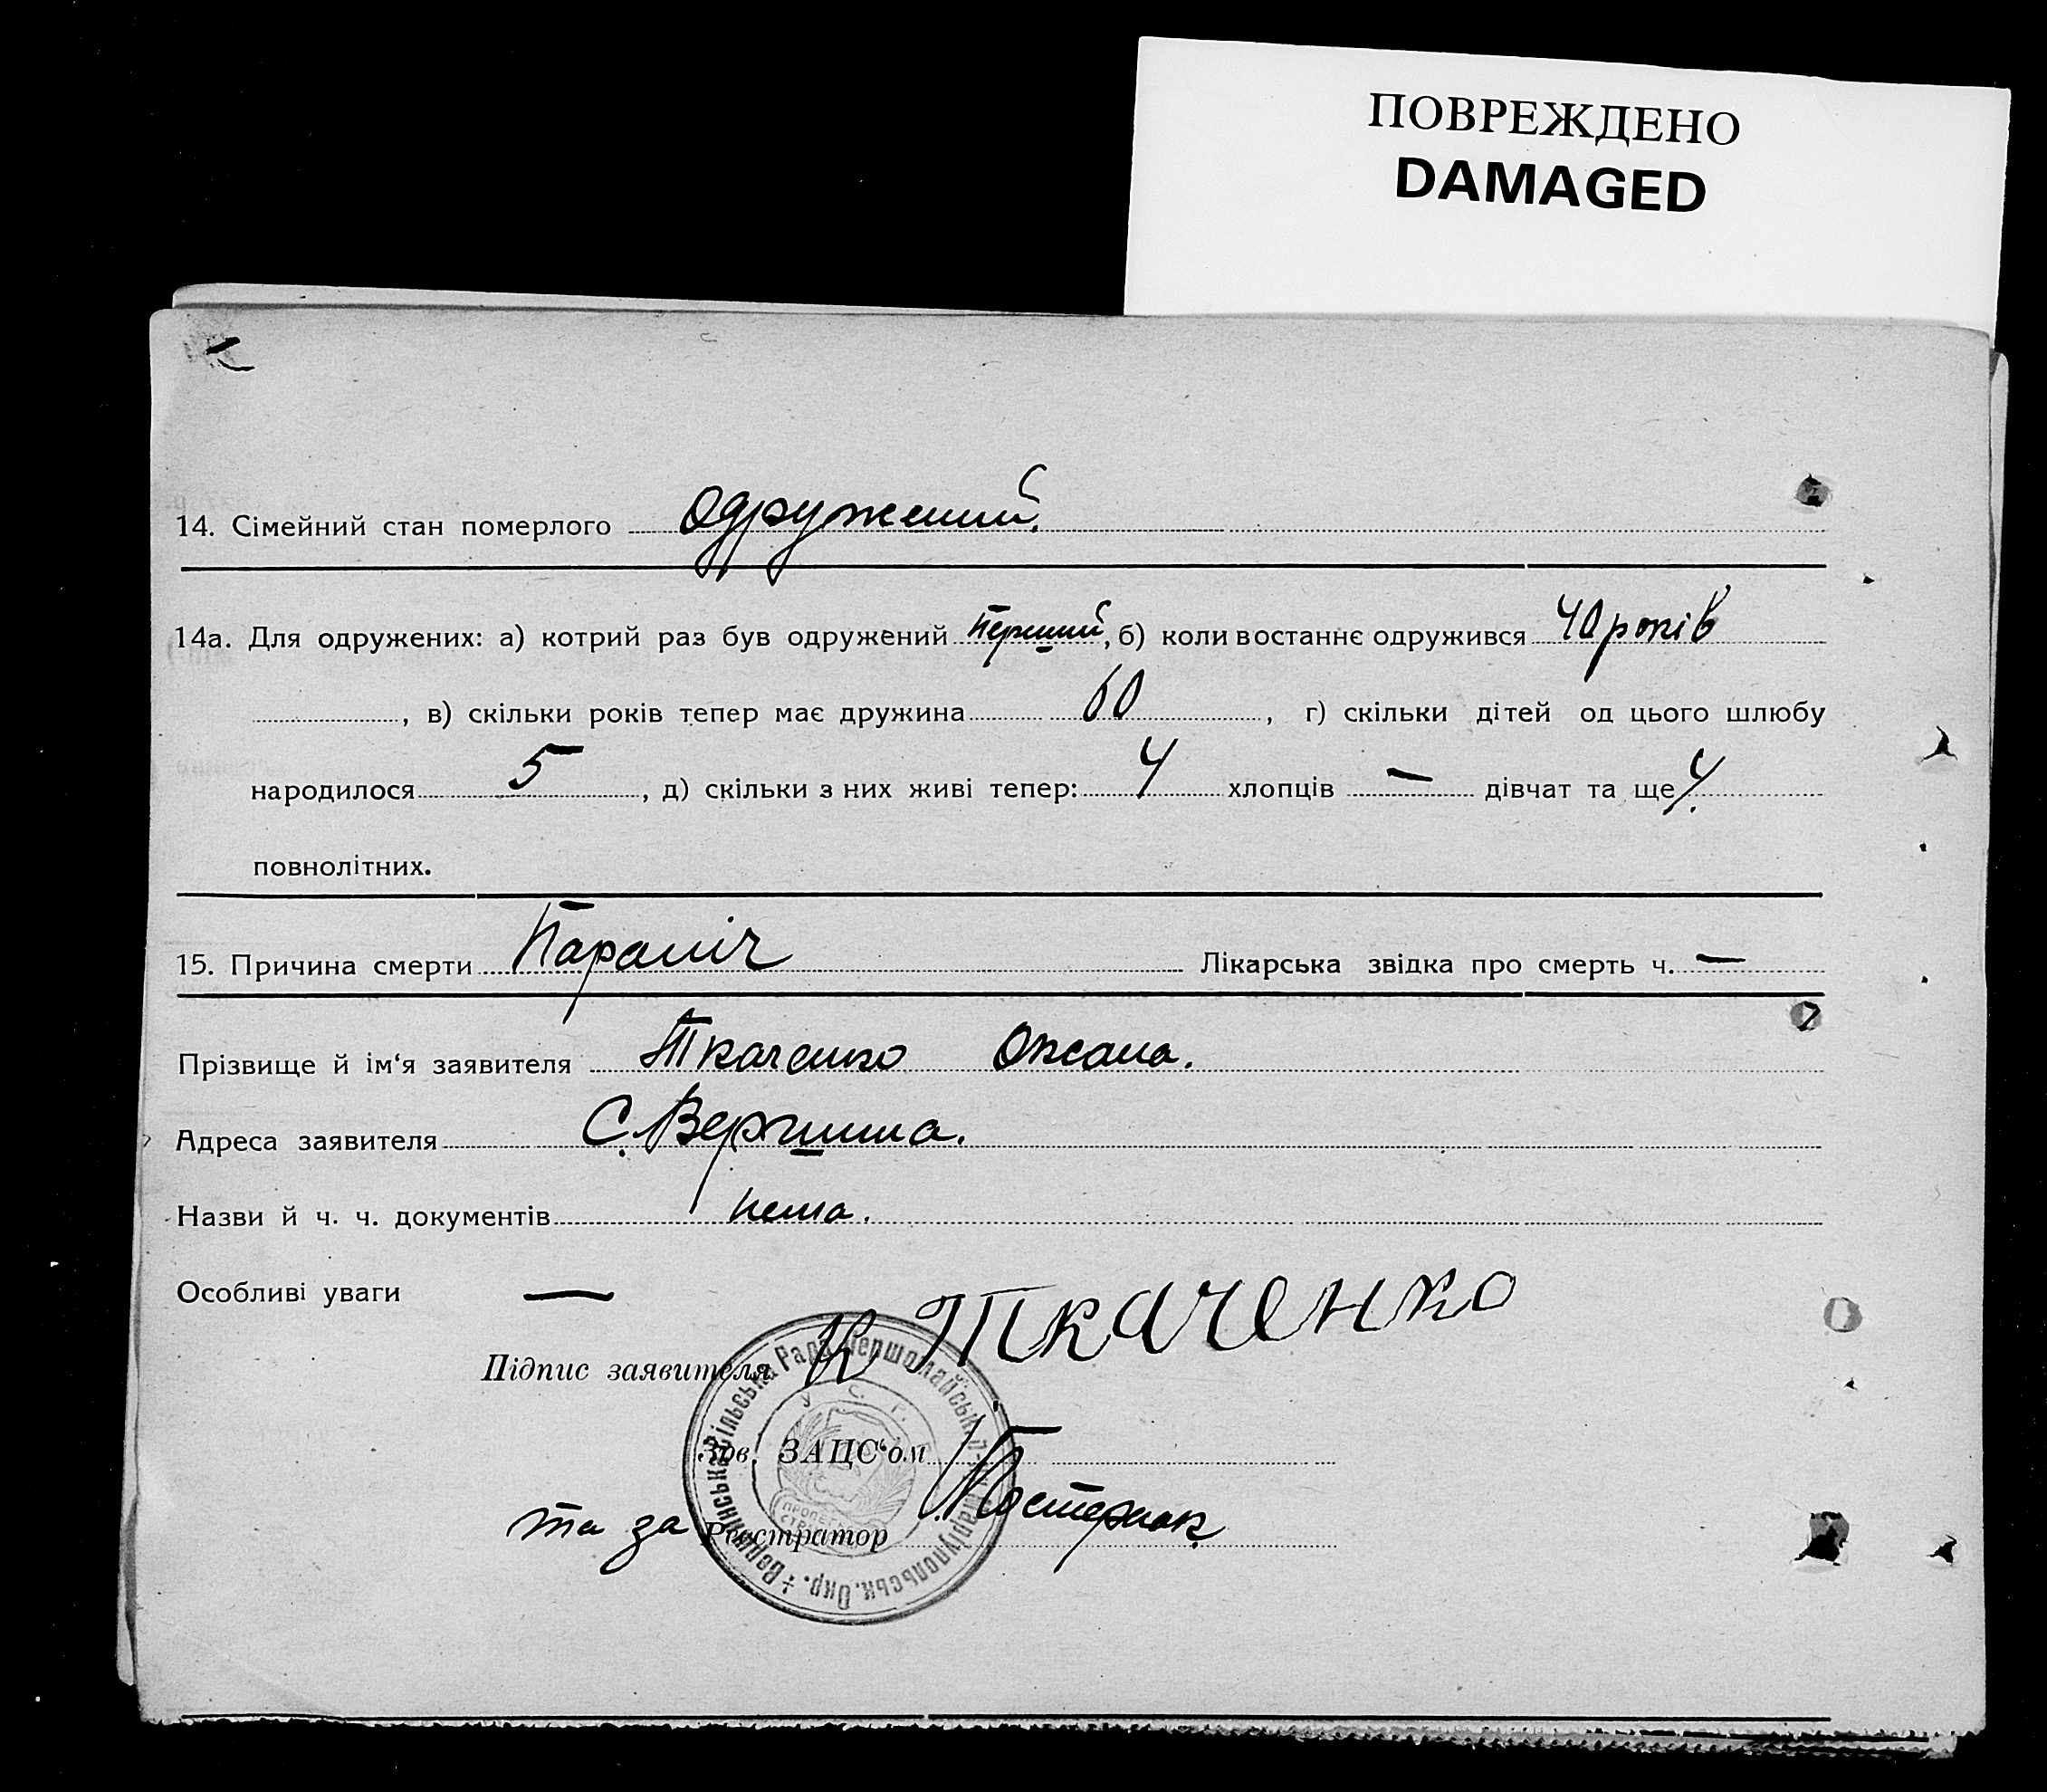 ПОВРЕЖДЕНО
DAMAGED
14. Сімейний стан померлого одружений.
14а. Для одружених: а) котрий раз був одружений перший, б) коли востаннє одружився 40 років
, в) скільки років тепер має дружина 60, г) скільки дітей од цього шлюбу
народилося 5, д) скільки з них живі тепер: 4 хлопців — дівчат та ще 4.
повнолітних.
15. Причина смерти Параліч Лікарська звідка про смерть ч. —
Прізвище й ім‘я заявителя Ткаченко Оксана.
Адреса заявителя С. Вершина.
Назви й ч. ч. документів нема.
Особливі уваги —
Підпис заявителя К Ткаченко
Зав. ЗАЦС‘ом
та за Реєстратор Пастернак
Сільська Рада Першомайськ. Маріупольськ. Окр.
У. С.